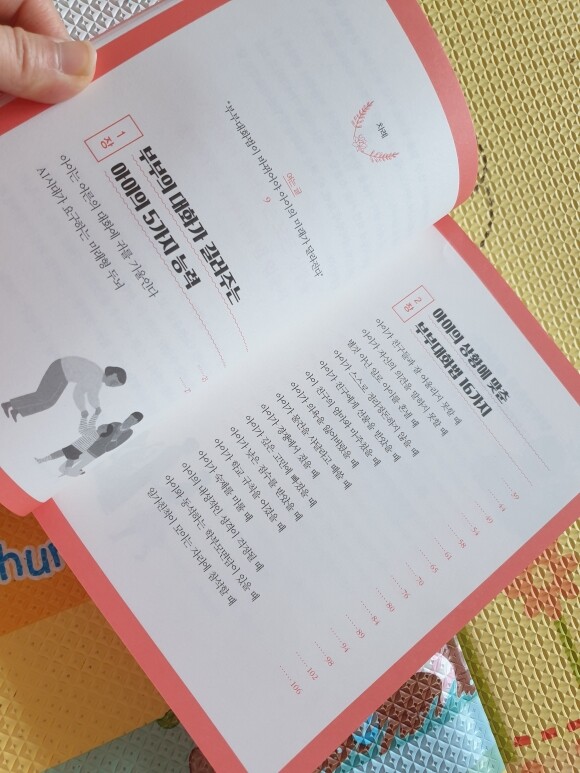 차례
여는 글
"부부대화법이 바뀌어야 아이의 미래가 달라진다"
9
1장
부부의 대화가 길러주는
아이의 5가지 능력
아이는 어른의 대화에 귀를 기울인다
AI시대가 요구하는 미래형 두뇌
2장
아이의 상황에 맞춘
부부대화법 16가지
아이가 친구들과 잘 어울리지 못할 때 39
아이가 자신의 의견을 말하지 못할 때 44
별것 아닌 일로 아이를 혼낼 때 49
아이가 스스로 정리정돈하지 않을 때 54
아이가 친구에게 선물을 받았을 때 58
아이 친구의 엄마와 마주쳤을 때 61
아이가 의욕을 잃어버렸을 때 65
아이가 물건을 사달라고 떼쓸 때 70
아이가 경쟁에서 졌을 때 76
아이가 깊은 고민에 빠졌을 때 80
아이가 낮은 점수를 받았을 때 84
아이가 학교 규칙을 어겼을 때 89
아이가 숙제를 미룰 때 94
아이의 내성적인 성격이 걱정될 때 98
아이와 동석하는 학부모면담이 있을 때 102
일가친척이 모이는 자리에 참석할 때 106